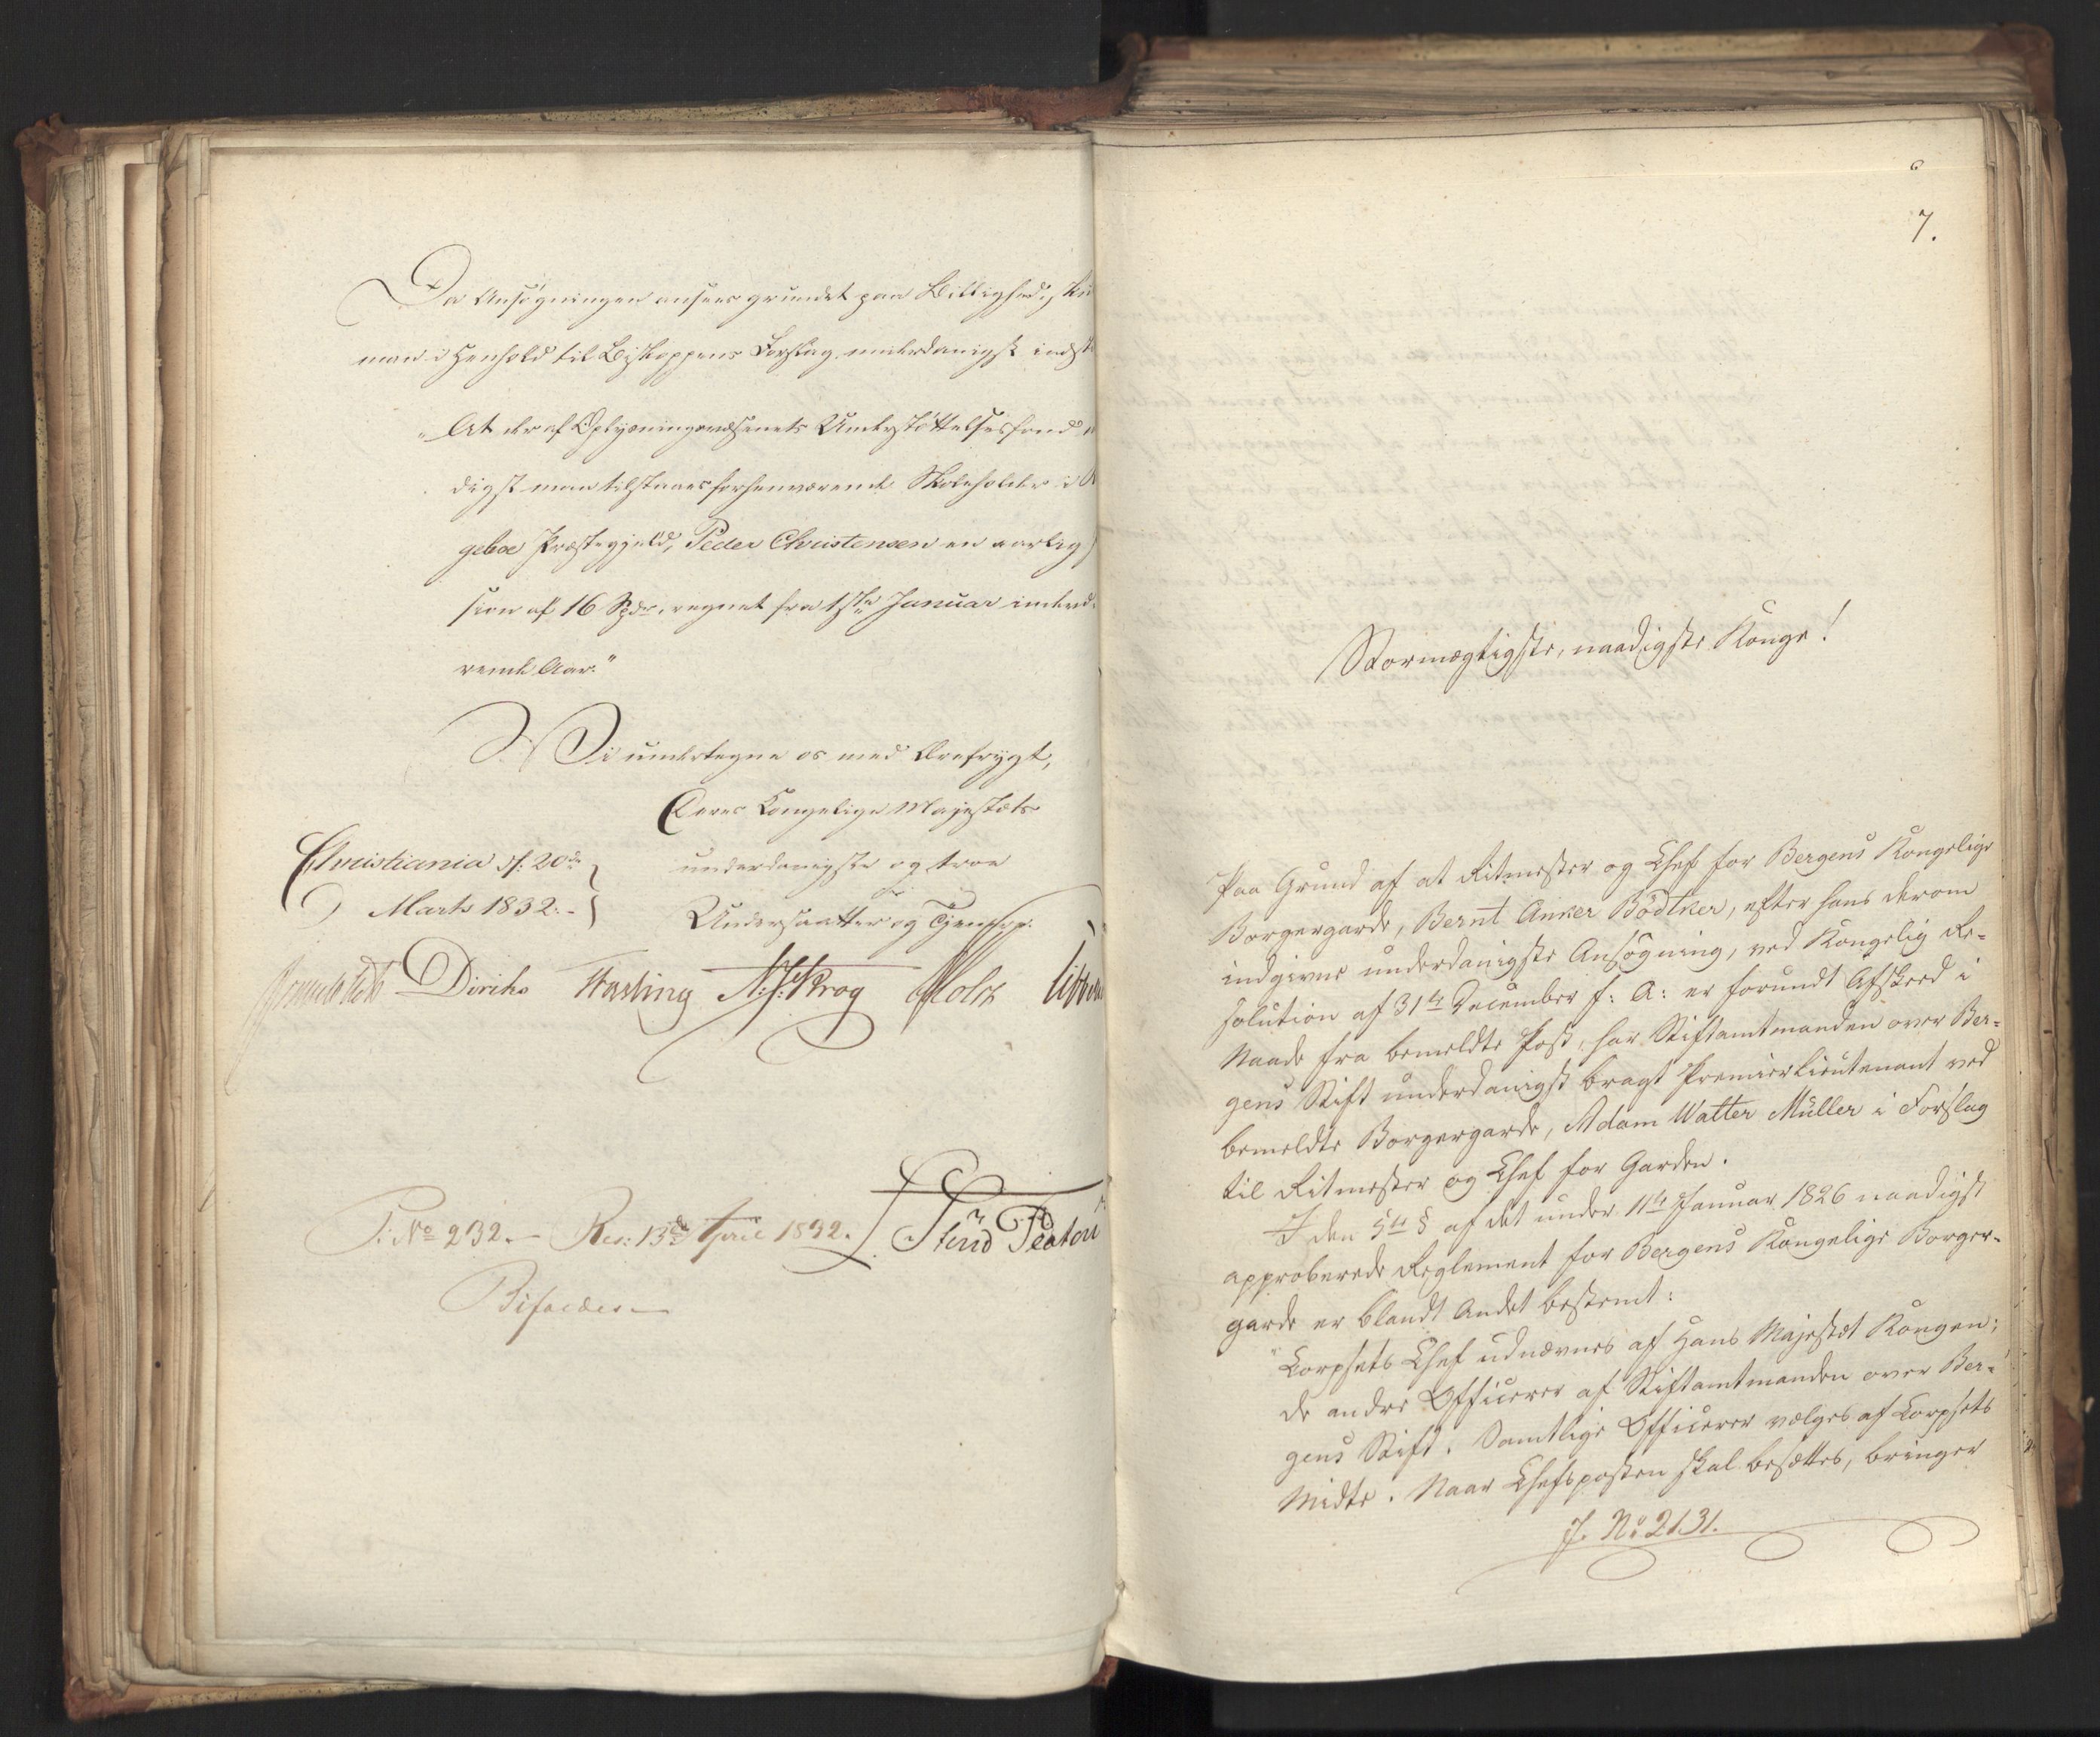 Da Ansøgningen ansees grundet paa Billighed, sku
man i Henhold til Biskoppens Forslag underdanigst indst
„At der af Oplysningsvæsenets Understöttelsesfond
digst maa tilstaaes forhenværende Skoleholder i
geboe Præstegjeld, Peder Christensen en aarlig
sion af 16 Spdr, regnet fra 1ste Januar indevæ-
rende Aar."
Vi undertegne os med Ærefrygt,
Deres Kongelige Majestæts
Christiania d: 20de
underdanigste og troe
Marts 1832.-
Undersaatter og Tjenere.
Diriks Fasting N: J: Krog Holst
P: No 232. - Res: 13de April 1832.
Bifaldes
7.
Stormægtigste, naadigste Konge!
Paa Grund af at Ritmester og Chef for Bergens Kongelige
Borgergarde, Bernt Anker Bödtker, efter hans derom
indgivne underdanigste Ansøgning, ved Kongelig Re-
solution af 31te December f: A: er forundt Afskeed i
Naade fra bemeldte Post, har Stiftamtmanden over Ber-
gens Stift underdanigst bragt Premierlieutenant ved
bemeldte Borgergarde, Adam Walter Müller i Forslag
til Ritmester og Chef for Garden.
I den 5te § af det under 11te Januar 1826 naadigst
approberede Reglement for Bergens Kongelige Borger-
garde er blandt Andet bestemt:
"Corpsets Chef udnævnes af Hans Majestæt Kongen;
de andre Officerer af Stiftamtmanden over Ber-
gens Stift. Samtlige Officerer vælges af Corpsets
Midte. Naar Chefsposten skal besættes, bringer
J. No 2131.